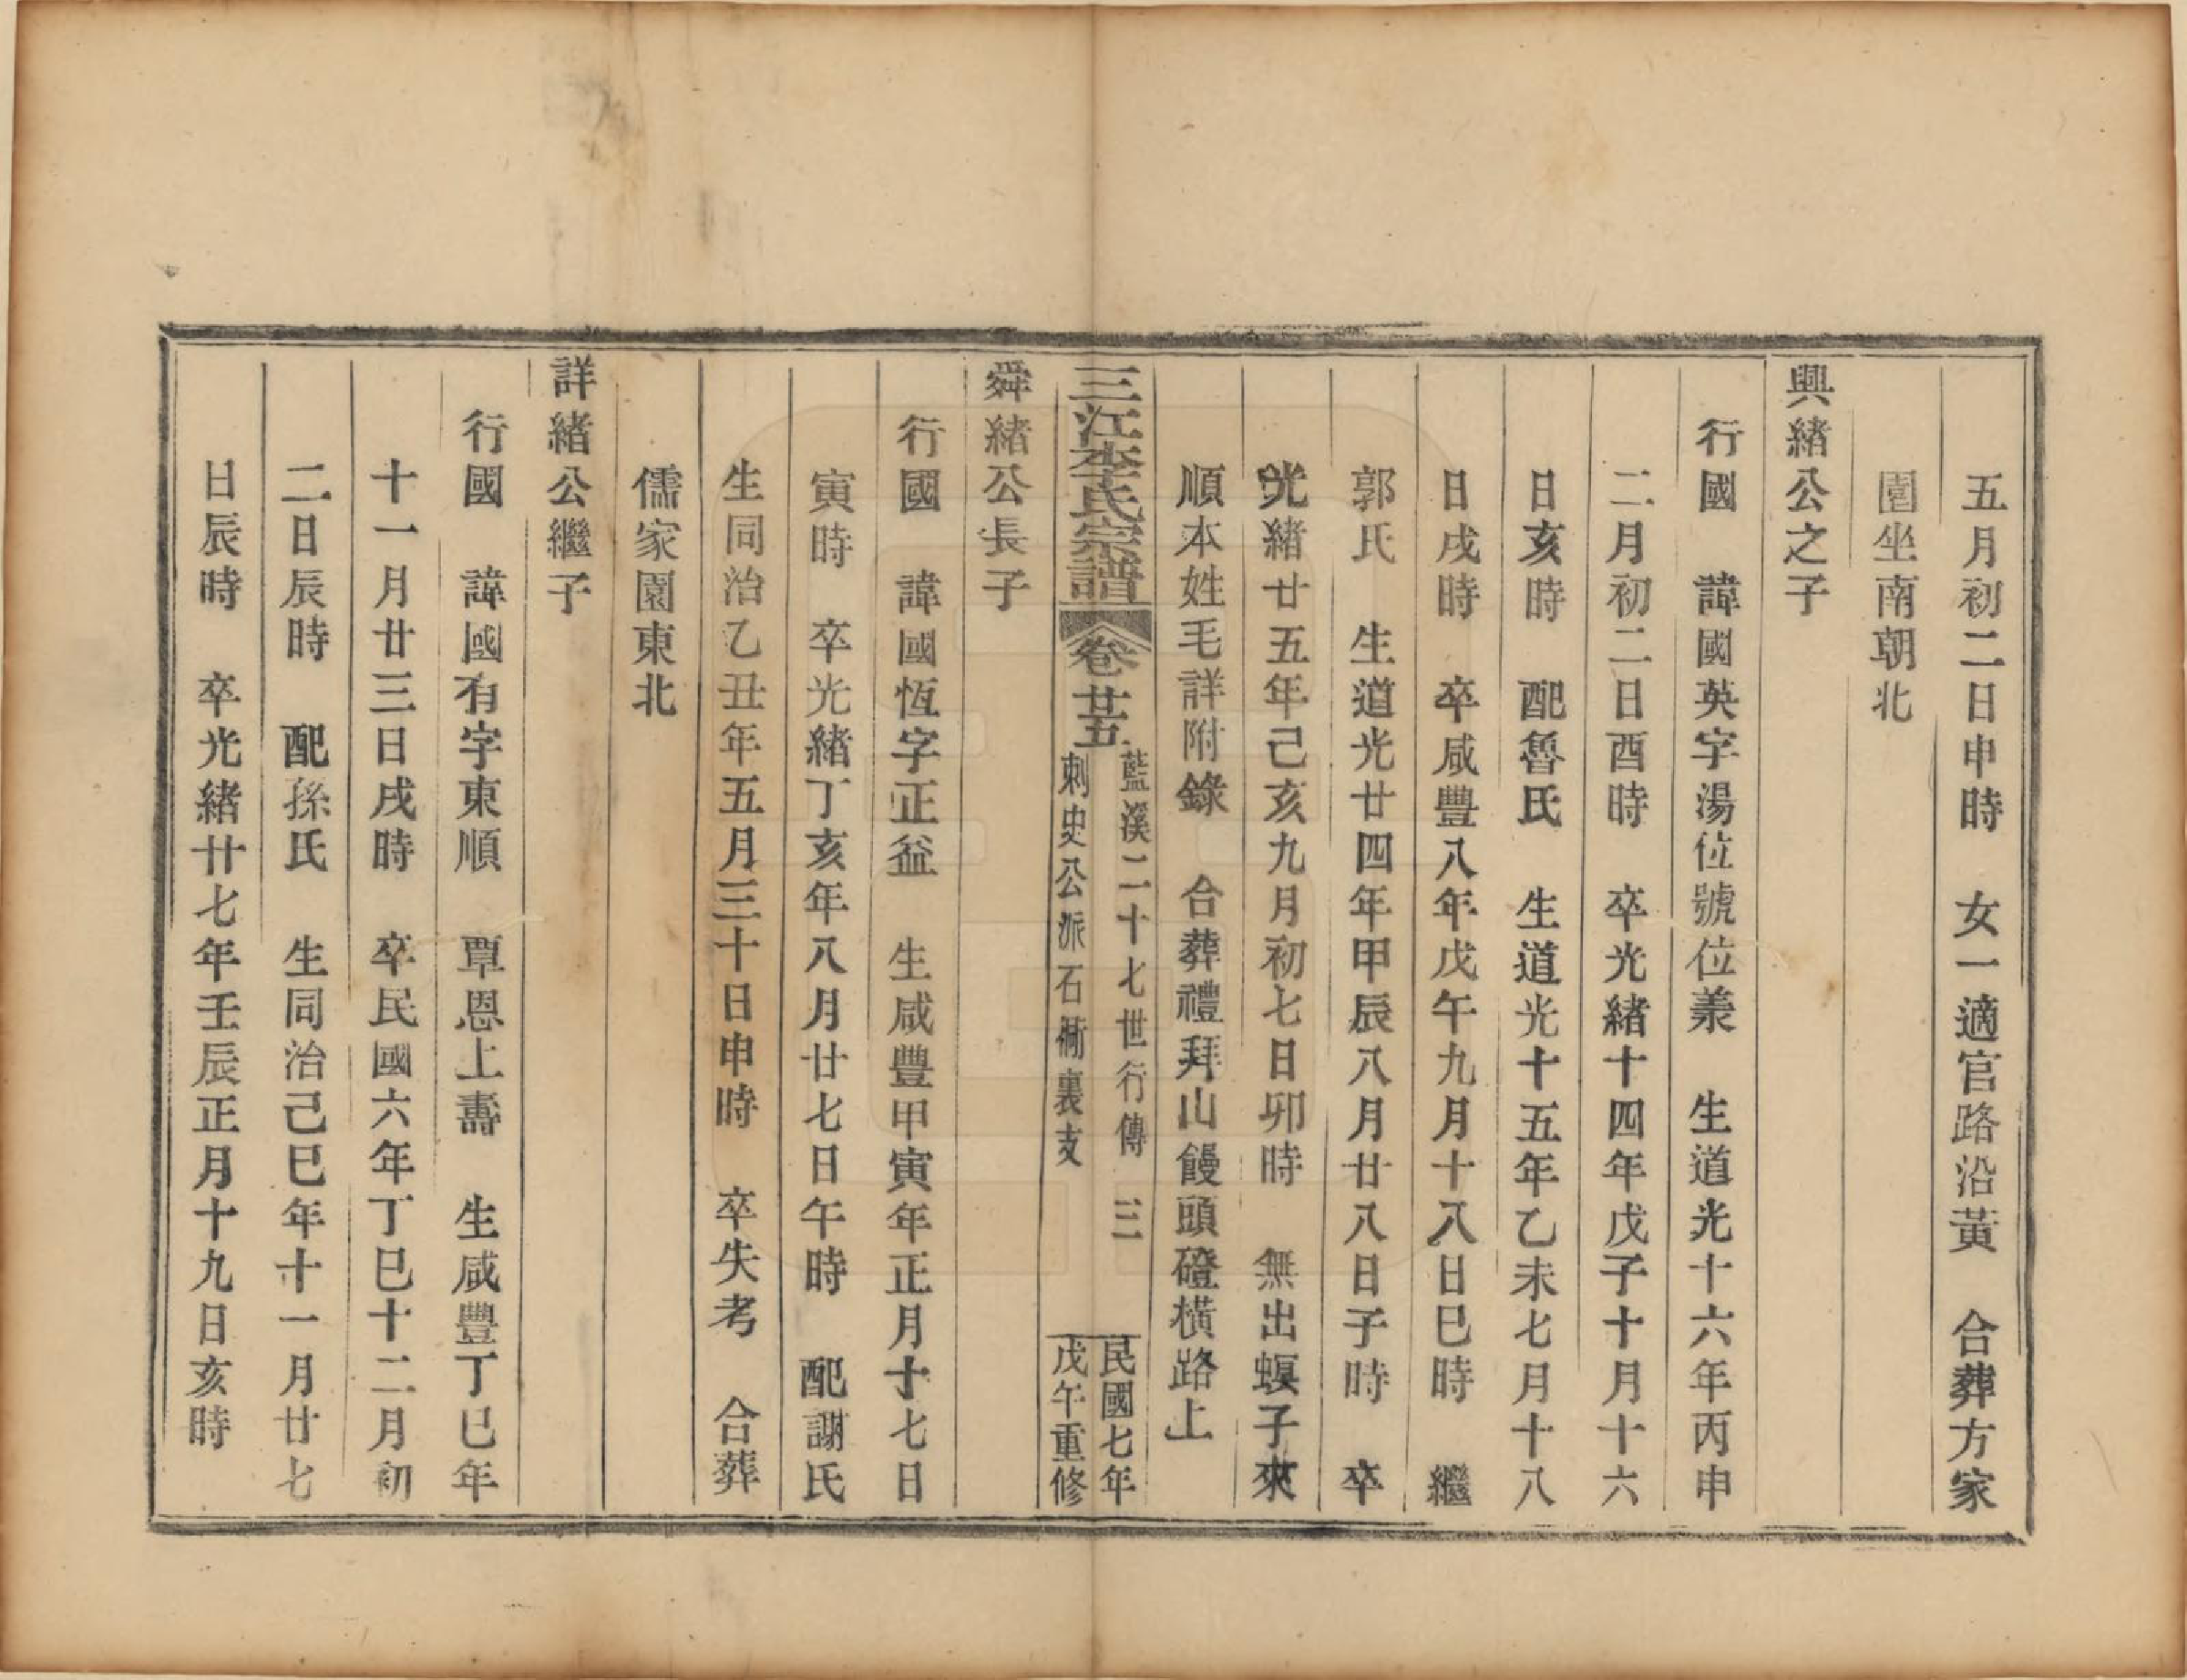 五月初二日申時　女一適官路沿黃　合葬方家
園坐南朝北
興緒公之子
行國　諱國英字湯位號位義　生道光十六年丙申
二月初二日酉時　卒光緒十四年戊子十月十六
日亥時　配魯氏　生道光十五年乙未七月十八
日戌時　卒咸豐八年戊午九月十八日巳時　繼
郭氏　生道光廿四年甲辰八月廿八日子時　卒
光緒廿五年己亥九月初七日卯時　無出螟子來
順本姓毛詳附錄　合葬禮拜山饅頭磴橫路上
三江李氏宗譜　卷廿五
藍溪二十七世行傳　三
刺史公派石衕裏支
民國七年
戊午重修
舜緒公長子
行國　諱國恆字正益　生咸豐甲寅年正月十七日
寅時　卒光緒丁亥年八月廿七日午時　配謝氏
生同治乙丑年五月三十日申時　卒失考　合葬
儒家園東北
詳緒公繼子
行國　諱國有字東順　覃恩上壽　生咸豐丁巳年
十一月廿三日戌時　卒民國六年丁巳十二月初
二日辰時　配孫氏　生同治己巳年十一月廿七
日辰時　卒光緒廿七年壬辰正月十九日亥時